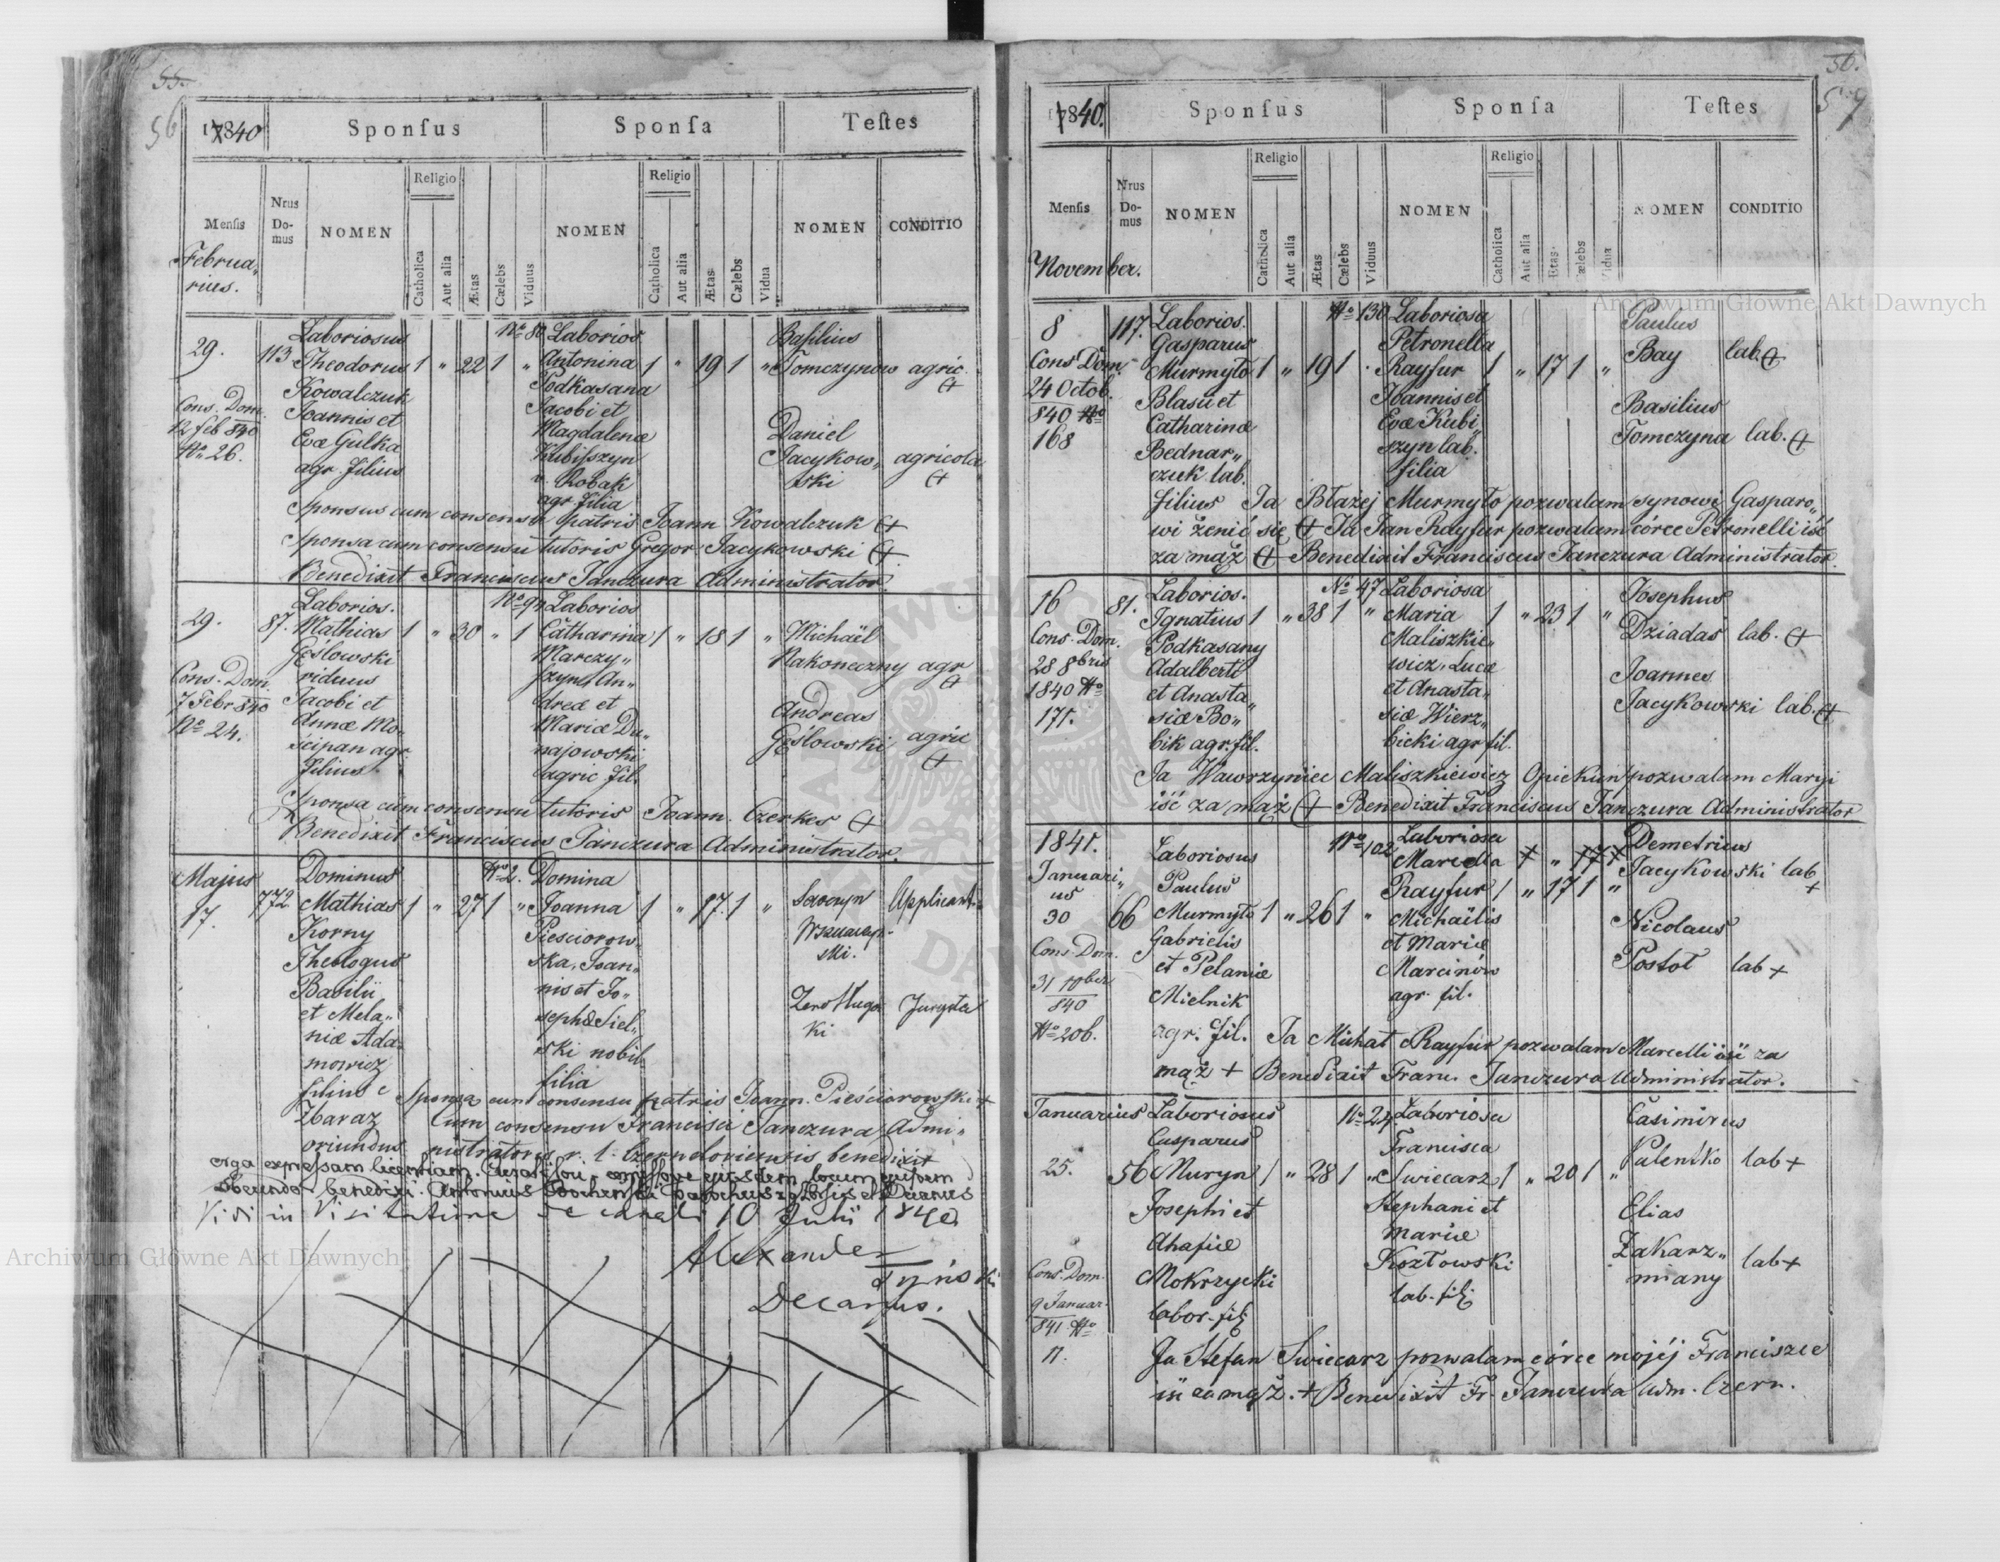 55.
56
1840
Sponſus
Sponſa
Teſtes
Religio
Religio
Menſis
Nrus Domus
NOMEN
Catholica
Aut alia
Ætas
Cælebs
Viduus
NOMEN
Catholica
Aut alia
Ætas
Cælebs
Vidua
NOMEN
CONDITIO
Februa„
rius.
29.
Cons. Dom.
12 feb 840
No 26.
113
Laboriosus
Theodorus 1 „ 22 1 „
Kowalczuk
Joannis et
Evæ Gulka
agr. filius
No 80 Laborios
Antonina 1 „ 19 1 „
Podkasana
Jacobi et
Magdalenæ
Kubiſszyn
v. Robak
agr filia
Basilius
Tomczynow agric.
+
Daniel
Jacykow„ agricola
ski +
Sponsus cum consensu patris Joann Kowalczuk +
Sponsa cum consensu tutoris Gregor. Jacykowski +
Benedixit Franciscus Janczura Administrator.
29.
Cons. Dom
7 Febr 840
No 24.
87.
Laborios.
Mathias 1 „ 30 „ 1
Gęslowski
viduus
Jacobi et
Annæ Mo„
ścipan agr.
filius.
Laborios
Catharina 1 „ 18 1 „
Marczy„
szyn, An„
dreæ et
Mariæ Du„
najowski
agric fil.
Michaël
Nakoneczny agr
+
Andreas
Gęślowski agric
+
Sponsa cum consensu tutoris Joann. Czerkes +
Benedixit Franciscus Janczura Administrator.
Majus
17.
772
Dominus
Mathias 1 „ 27 1 „
Korny
Theologus
Basilii
et Mela„
niæ Ada„
mowicz
filius e
Zbaraz
oriundus
No 2. Domina
Joanna 1 „ 17. 1 „
Piesciorow„
ska, Joan„
nis et Jo„
sephæ Siel„
ski nobil
filia
Applicant
ski.
ki
Jurysta
Sponsa cum consensu patris Joann. Pieściorowski +
Cum consensu Francisci Janczura Admi„
nistratoris r. l. benedixit
erga expreſsam licentiam
benedixi. Antonius Parochus et Decanus
Visi in Visitatione Decanali 10 Julii 1840.
Alexander
Decanus.
56.
57
1840.
Sponſus
Sponſa
Teſtes
Religio
Religio
Menſis
Nrus Domus
NOMEN
Catholica
Aut alia
Ætas
Cælebs
Viduus
NOMEN
Catholica
Aut alia
Ætas.
Cælebs
Vidua
NOMEN
CONDITIO
November.
8
Cons Dom.
24 Octob.
840 No
168
117.
Laborios.
Gasparus
Murmyło 1 „ 19 1 .
Blasii et
Catharinæ
Bednar„
czuk lab.
filius
No 130 Laboriosa
Petronella
Rayfur 1 „ 17 1 „
Joannis et
Evæ Kubi„
szyn lab.
filia
Paulus
Bay lab. +
Basilius
Tomczyna lab. +
Ja Błażej Murmyło pozwalam synowi Gasparo„
wi żenić się + Ja Jan Rayfur pozwalam córce Petronelli iść
za mąż + Benedixit Franciscus Janczura Administrator.
16
Cons. Dom.
28 8bris
1840 No
171.
81.
Laborios.
Ignatius 1 „ 38 1 „
Podkasany
Adalberti
et Anasta„
siæ Bo„
bik agr. fil.
No 47 Laboriosa
Maria 1 „ 23 1 „
Maliszkie„
wicz, Lucæ
et Anasta„
siæ Wierz„
bicki agr fil.
Josephus
Dziadaś lab. +
Joannes
Jacykowski lab. +
Ja Wawrzyniec Maliszkiewicz Opiekun pozwalam Maryi
iść za mąż + Benedixit Franciscus Janczura Administrator
1841.
Januari„
us
30
Cons Dom.
31 10bris
840
No 206.
66
Laboriosus
Paulus
Murmyło 1 „ 26 1 „
Gabrielis
et Pelaniæ
Mielnik
agr. fil.
No 102 Laboriosa
Marcella
Rayfur 1 „ 17 1 „
Michaëlis
et Mariæ
Marcinów
agr. fil.
Demetrius
Jacykowski lab
+
Nicolaus
Postoł lab +
Ja Michał Rayfur pozwalam Marcelli iść za
mąż + Benedixit Franc. Janczura Administrator.
Januarius
25.
Cons. Dom.
9 Januar.
841 No
11.
56
Laboriosus
Casparus
Muryn 1 „ 28 1 „
Josephi et
Ahafiæ
Mokrzycki
labor. fil
No 24. Laboriosa
Francisca
Swiecarz 1 „ 20 1 „
Stephani et
Mariæ
Kozłowski
lab. fil.
Casimirus
lab +
Elias
Zakarz„
miany lab +
Ja Stefan Swiecarz pozwalam córce mojéj Franciszce
iść za mąż. + Benedixit Fr. Janczura Adm. Czern.
Archiwum Główne Akt Dawnych
Archiwum Główne Akt Dawnych